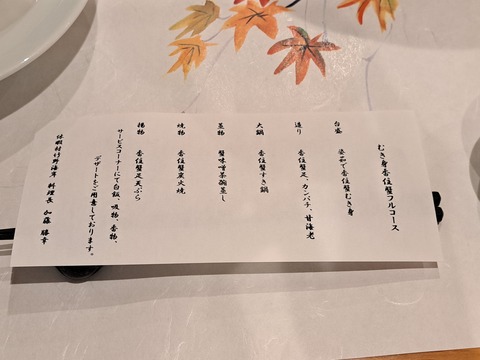 むき身香住蟹フルコース
台盛 姿茹で香住蟹むき身
造り 香住蟹足、カンパチ、甘海老
大鍋 香住蟹すき鍋
蒸物 蟹味噌茶碗蒸し
焼物 香住蟹炭火焼
揚物 香住蟹足天ぷら
サービスコーナーにて白飯、吸物、香物、
デザートをご用意しております。
休暇村竹野海岸 料理長 加藤 勝幸